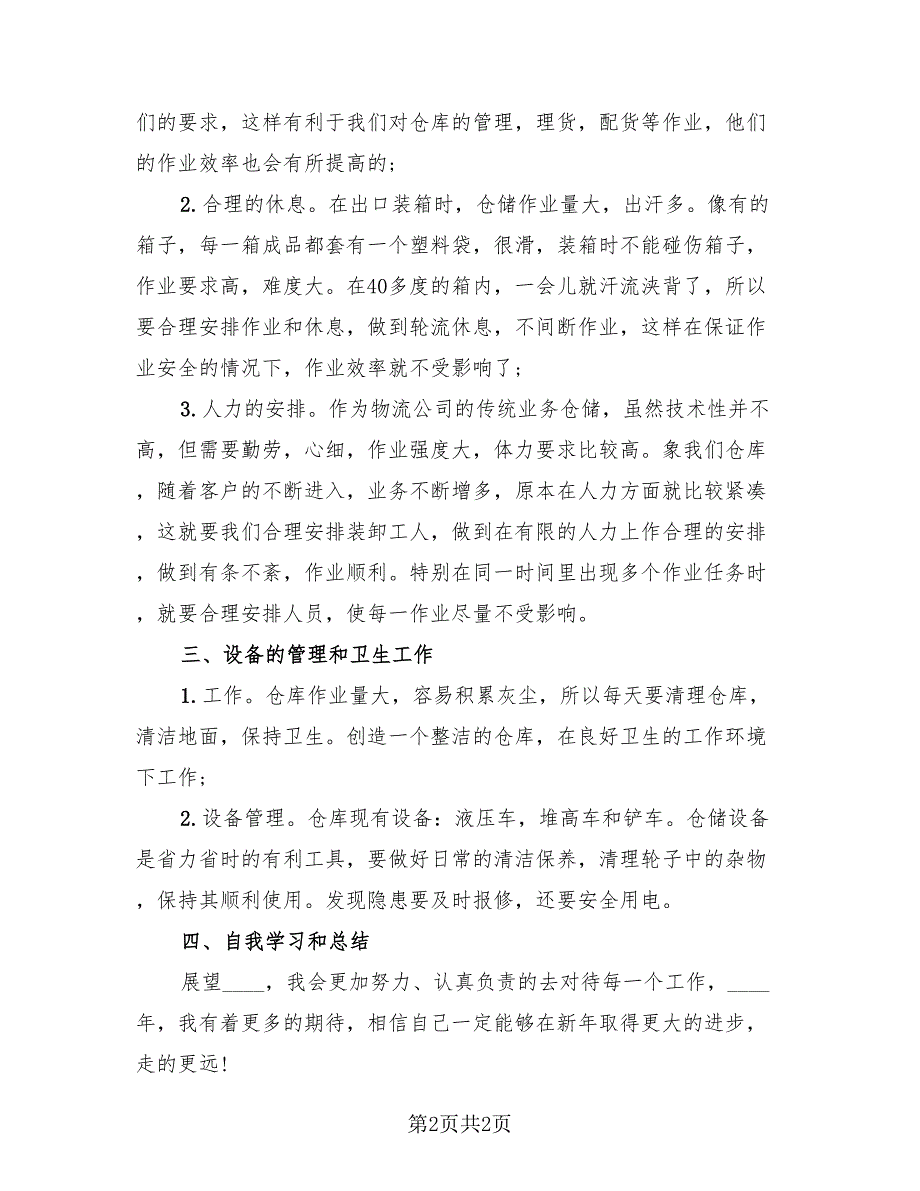 们的要求，这样有利于我们对仓库的管理，理货，配货等作业，他们
的作业效率也会有所提高的;
2.合理的休息。在出口装箱时，仓储作业量大，出汗多。像有的
箱子，每一箱成品都套有一个塑料袋，很滑，装箱时不能碰伤箱子，
作业要求高，难度大。在40多度的箱内，一会儿就汗流浃背了，所以
要合理安排作业和休息，做到轮流休息，不间断作业，这样在保证作
业安全的情况下，作业效率就不受影响了;
3.人力的安排。作为物流公司的传统业务仓储，虽然技术性并不
高，但需要勤劳，心细，作业强度大，体力要求比较高。象我们仓库
，随着客户的不断进入，业务不断增多，原本在人力方面就比较紧凑
，这就要我们合理安排装卸工人，做到在有限的人力上作合理的安排
，做到有条不紊，作业顺利。特别在同一时间里出现多个作业任务时
，就要合理安排人员，使每一作业尽量不受影响。
三、设备的管理和卫生工作
1.工作。仓库作业量大，容易积累灰尘，所以每天要清理仓库，
清洁地面，保持卫生。创造一个整洁的仓库，在良好卫生的工作环境
下工作;
2.设备管理。仓库现有设备：液压车，堆高车和铲车。仓储设备
是省力省时的有利工具，要做好日常的清洁保养，清理轮子中的杂物
，保持其顺利使用。发现隐患要及时报修，还要安全用电。
四、自我学习和总结
展望____，我会更加努力、认真负责的去对待每一个工作，____
年，我有着更多的期待，相信自己一定能够在新年取得更大的进步，
走的更远!
第2页共2页